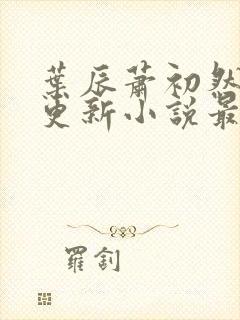 葉辰蕭初然
更新小說最
羅釗